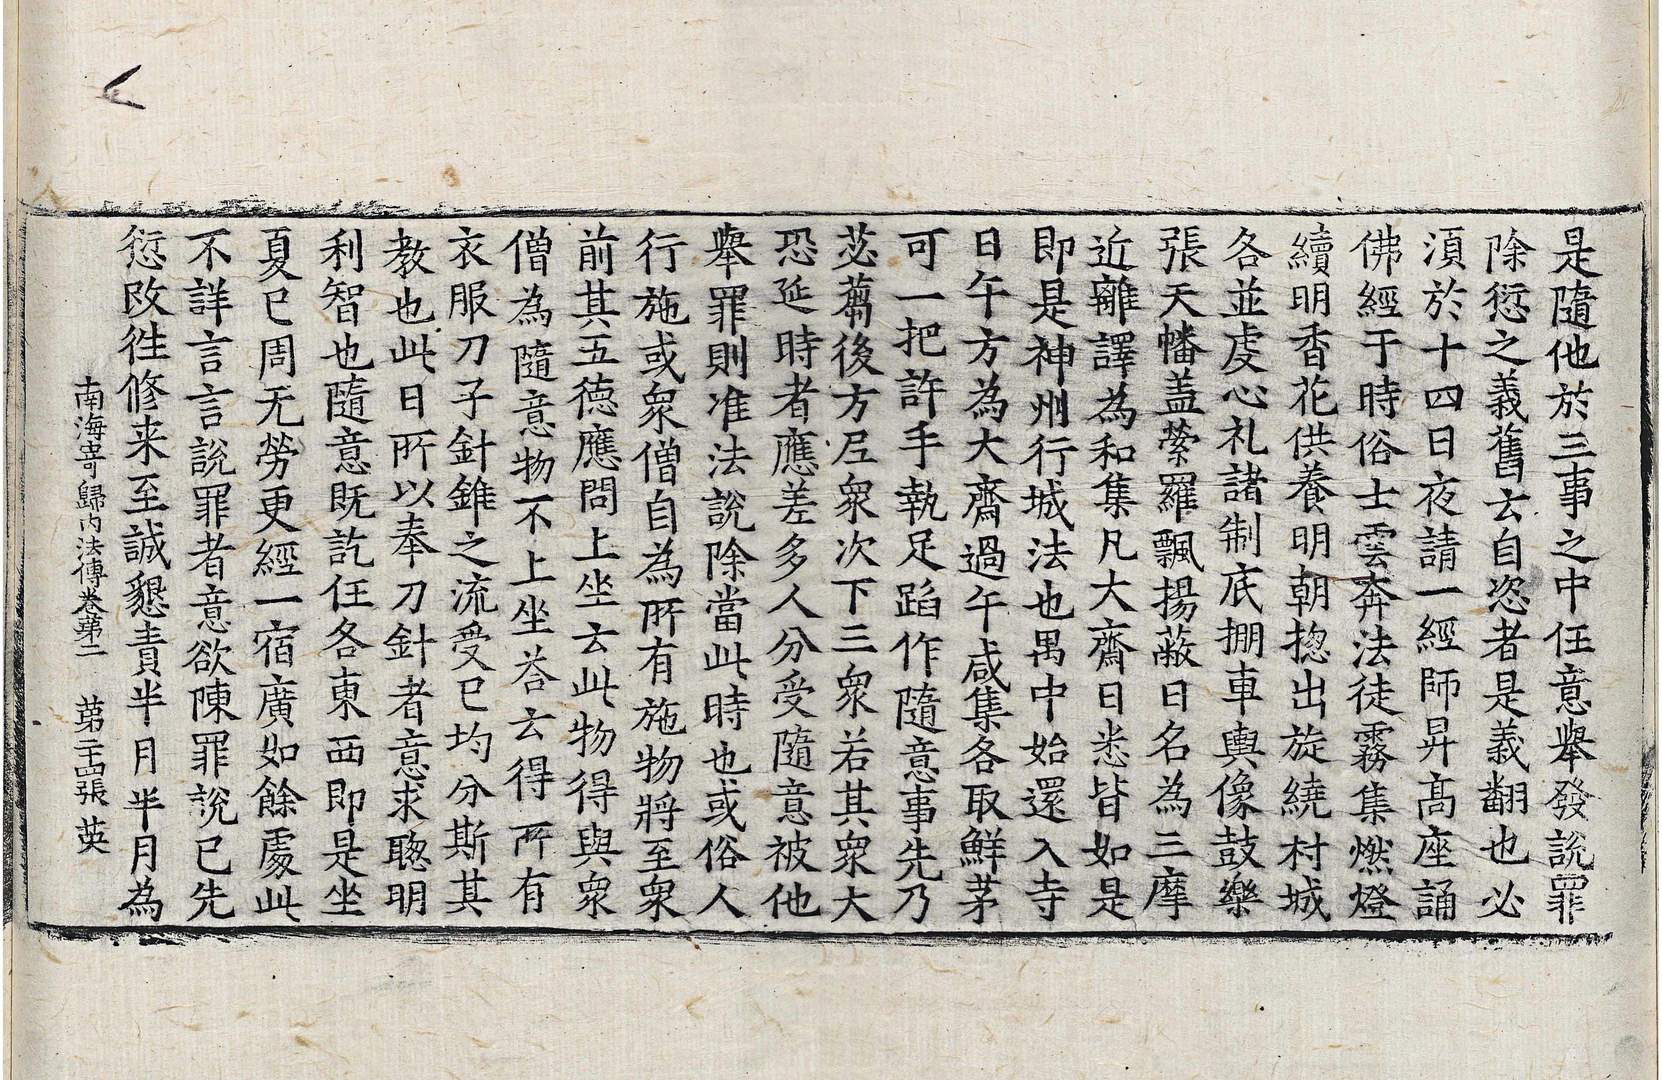 是隨他於三事之中任意舉發說罪
除愆之義舊云自恣者是義翻也必
湏於十四日夜請一經師昇髙座誦
佛經于時俗士雲奔法徒霧集燃燈
續明香花供養明朝揔出旋繞村城
各並虔心礼諸制底棚車輿像鼓樂
張天幡盖縈羅飄揚蔽日名為三摩
近離譯為和集凡大齋日悉皆如是
即是神州行城法也禺中始還入寺
日午方為大齋過午咸集各取鮮茅
可一把許手執足蹈作隨意事先乃
苾蒭後方尼衆次下三衆若其衆大
恐延時者應差多人分受隨意被他
舉罪則准法說除當此時也或俗人
行施或衆僧自為所有施物將至衆
前其五德應問上坐云此物得與衆
僧為隨意物不上坐荅云得所有
衣服刀子針錐之流受已均分斯其
教也此日所以奉刀針者意求聦明
利智也隨意既訖任各東西即是坐
夏已周无勞更經一宿廣如餘處此
不詳言言說罪者意欲陳罪說已先
愆改往修来至誠懇責半月半月為
南海寄歸内法傳卷苐二 苐二十四張 英